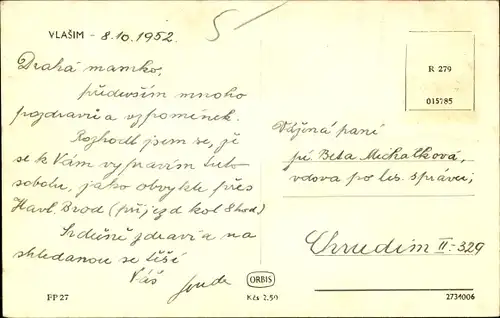 VLAŠIM - 8.10.1952.
5
Drahá mamko,
především mnoho
pozdravů a vzpomínek.
Rozhodl jsem se, že
se k Vám vypravím tuto
sobotu, jako obvykle přes
Havl. Brod (příjezd kol 8 hod)
Srdečně zdraví a na
shledanou se těší
Váš
R 279
015785
Vážená paní
pí. Beta Michálková,
vdova po les. správci,
Chrudim II-329
FP 27
ORBIS
Kčs 2,50
2734006